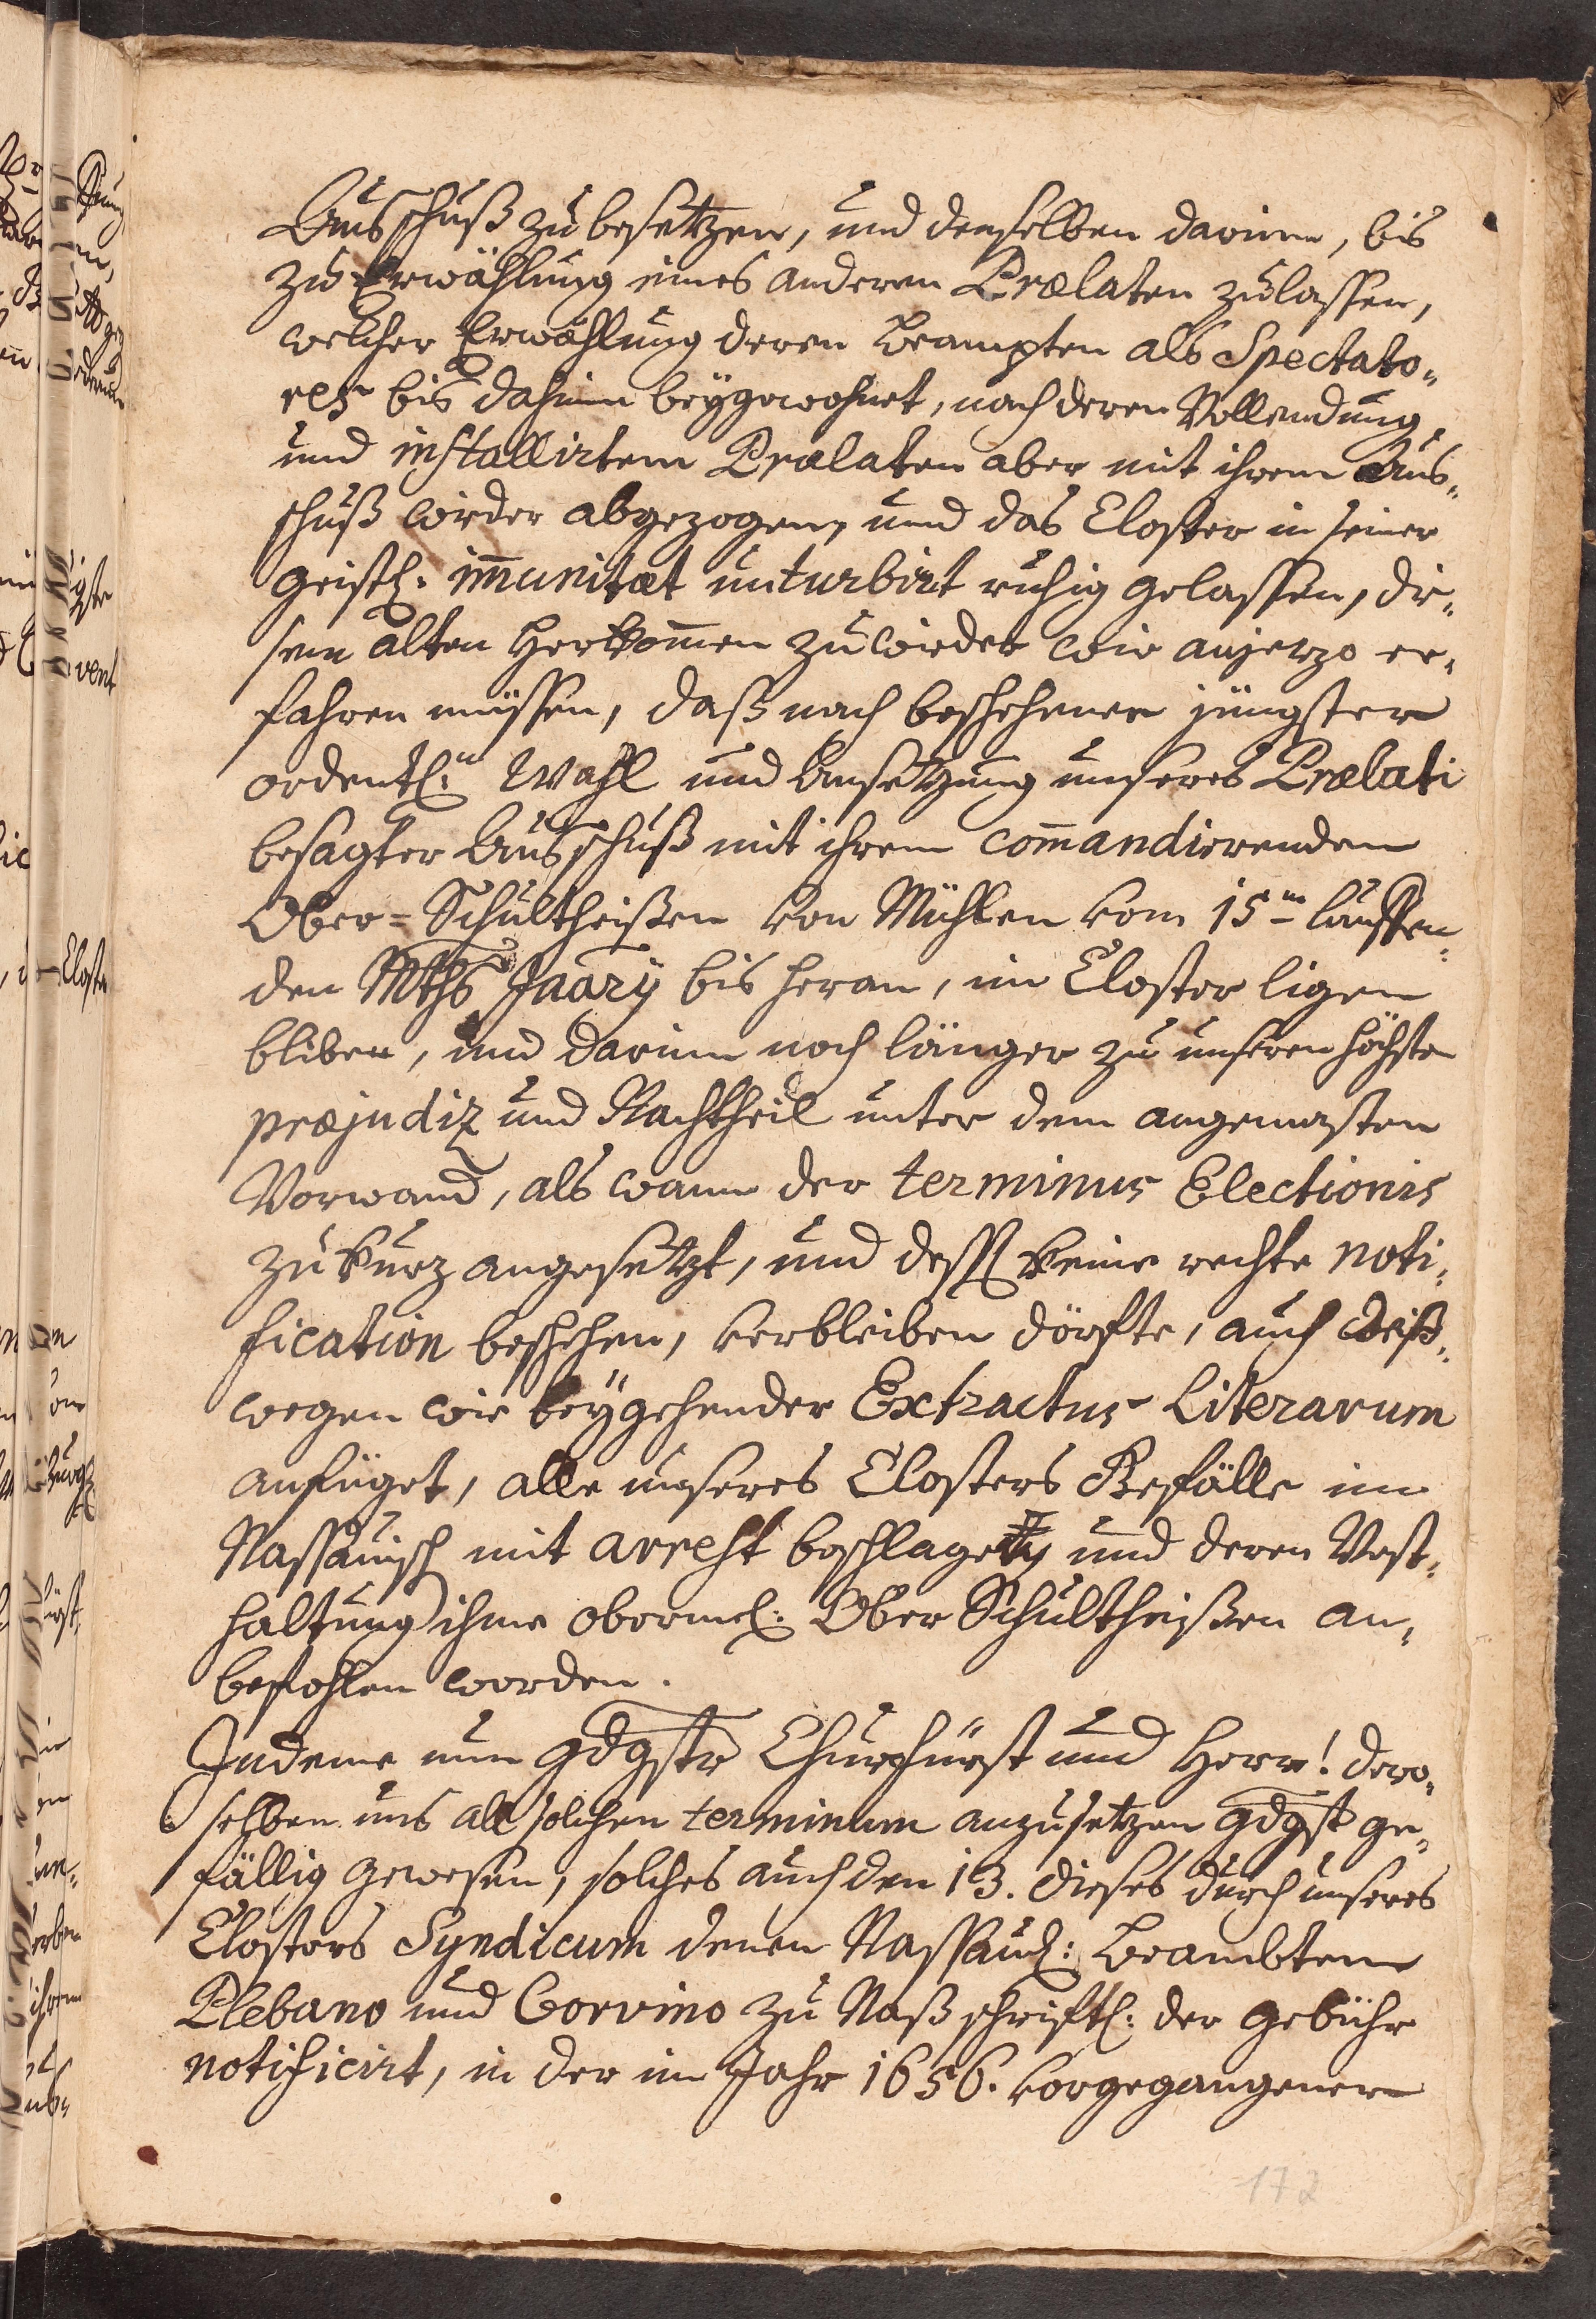 Ausschuß zu besetzen, und denselben darinn, bis
zu Erwählung eines anderen Prælaten zulassen,
welcher Erwählung deren Beampten als Spectato„
res bis dahinn beÿgewohnet, nach deren Vollendung,
und installirtem Prælaten aber mit ihrem Aus„
schuß wider abgezogen, und das Closter in seiner
geistl: im̄unitæt unturbirt ruhig gelassen, die„
sem alten Herkom̄en zu wider wir anjetzo er„
fahren müssen, daß nach beschehener jüngster
ordentl:n Wahl und Ansetzung unseres Prælati
besagter Ausschuß mit ihrem com̄andierenden
Ober=Schultheißen von Mühlen vom 15ten lauffen„
den Mths Jäarÿ bis heran, im Closter ligen
bliben, und darinn noch länger zu unseren höchste
præjudiz und Nachtheil unter dem angemasten
Vorwand, als wann der terminus Electionis
zu kurz angesetzt, und dess keine rechte noti„
fication beschehen, verbleiben dörfte, auch deiß„
wegen wie beÿgehender Extractus Literarum
anfüget, alle unseres Closters Gefälle im
Nassauisch mit arrest beschlaget, und deren Vest„
haltung ihme obermel: Ober Schultheißen an„
befohlen worden.
Indeme nun gdgstr Churfürst und Herr! dero„
selben uns all solchen terminum anzusetzen gdgst ge„
fällig gewesen, solches auch den 13. dieses durch unseres
Closters Syndicum denen Nassau: Beambten
Plebano und Corvino zu Naß schriftl: der gebühr
notificirt, in der im Jahr 1656. vorgegangener
172